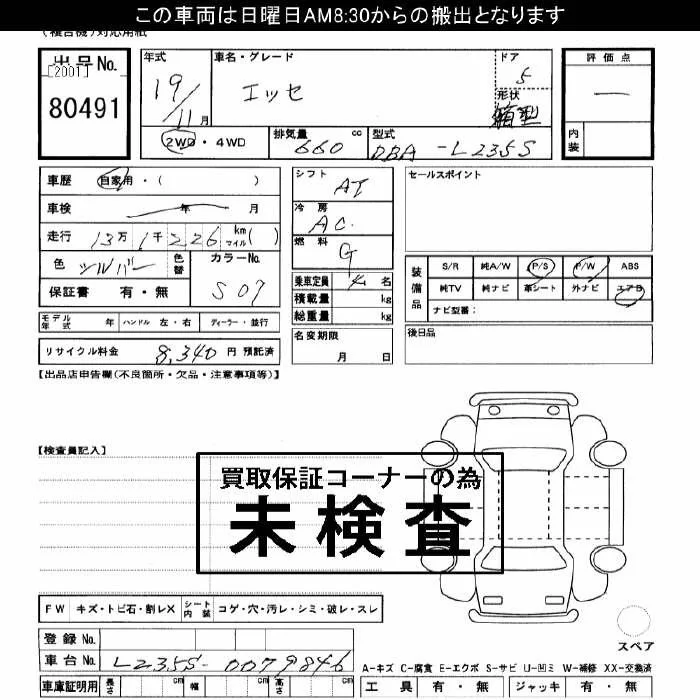 この車両は日曜日AM8:30からの搬出となります
(複合機)対応用紙
出品No. [2001] 80491
年式 19/11月
車名・グレード エッセ
ドア 5
形状 箱型
評価点 —
内装
2WD・4WD
排気量 660 cc
型式 DBA-L235S
車歴 自家用・( )
車検 年 月
走行 13万1千226 km マイル( )
色 シルバー 色替
カラーNo. S07
保証書 有・無
シフト AT
冷房 AC.
燃料 G
乗車定員 4名
積載量 kg
総重量 kg
セールスポイント
装備品 S/R 純A/W P/S P/W ABS
純TV 純ナビ 革シート 外ナビ エアB
ナビ型番:
モデル年式 年 ハンドル 左・右 ディーラー・並行
名変期限 月 日
後日品
リサイクル料金 8,340 円 預託済
【出品店申告欄(不良箇所・欠品・注意事項等)】
【検査員記入】
買取保証コーナーの為
未検査
FW キズ・トビ石・割レX シート内装 コゲ・穴・汚レ・シミ・破レ・スレ
スペア
登録No.
車台No. L235S-0079846
A-キズ C-腐食 E-エクボ S-サビ U-凹ミ W-補修 XX-交換済
車庫証明用 長さ cm 幅 cm 高さ cm
工具 有・無 ジャッキ 有・無